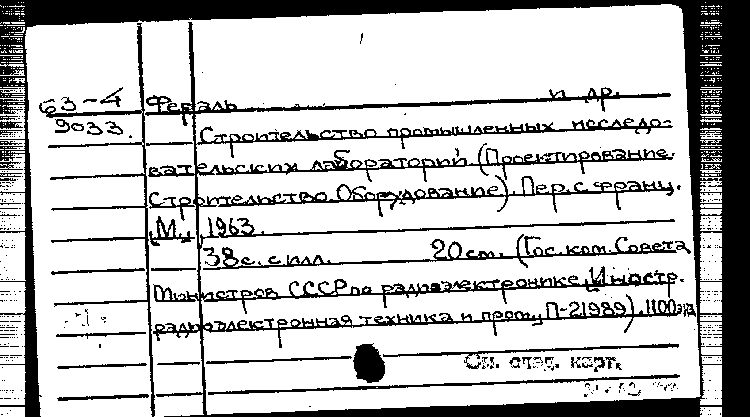 63-4 Фераль и др.
9033. Строительство промышленных исследо-
вательских лабораторий. (Проектирование.
Строительство. Оборудование). Пер. с франц.
М., 1963.
38 с. с илл. 20 см. (Гос. ком. Совета
Министров СССР по радиоэлектронике. Иностр.
радиоэлектронная техника и пром., П-21989). 1100 экз
См. след. карт.